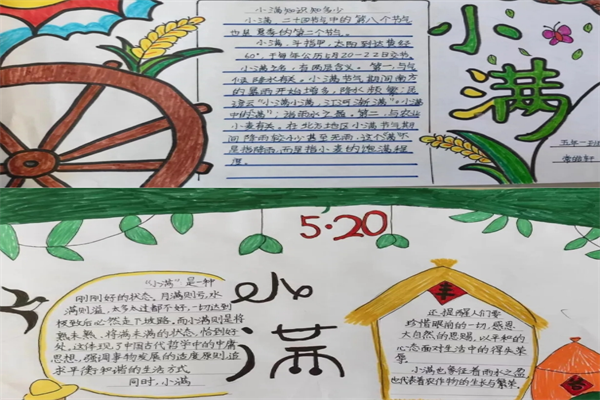 小满知识知多少
小满,二十四节气中的第八个节气
也是夏季的第二个节气。
小满,斗指甲,太阳到达黄经
60°,于每年公历5月20-22日交节。
小满之名,有两层含义。第一,与气
候降水有关。小满节气期间南方
的暴雨开始增多,降水频繁;民
谚云"小满小满,江河渐满""小满
中的满",指雨水之盈。第二,与农业
小麦有关。在北方地区小满节气期
间降雨较小甚至无雨,这个"满"不
是指降雨,而是指小麦的饱满程
度。
小
满
五年一班
5·20
小
满
"小满"是一种
刚刚好的状态。月满则亏,水
满则溢,太多太过都不好,一切达到
极致后必然走下坡路,而小满则是将
熟未熟、将满未满的状态,恰到好
处,这体现了中国古代哲学中的中庸
思想,强调事物发展的适度原则,追
求平衡和谐的生活方式
同时,小满
丰
还提醒人们要
珍惜眼前的一切,感恩
大自然的恩赐,以平和的
心态面对生活中的得失荣
辱
小满也象征着雨水之盈
也代表着农作物的生长与繁荣。